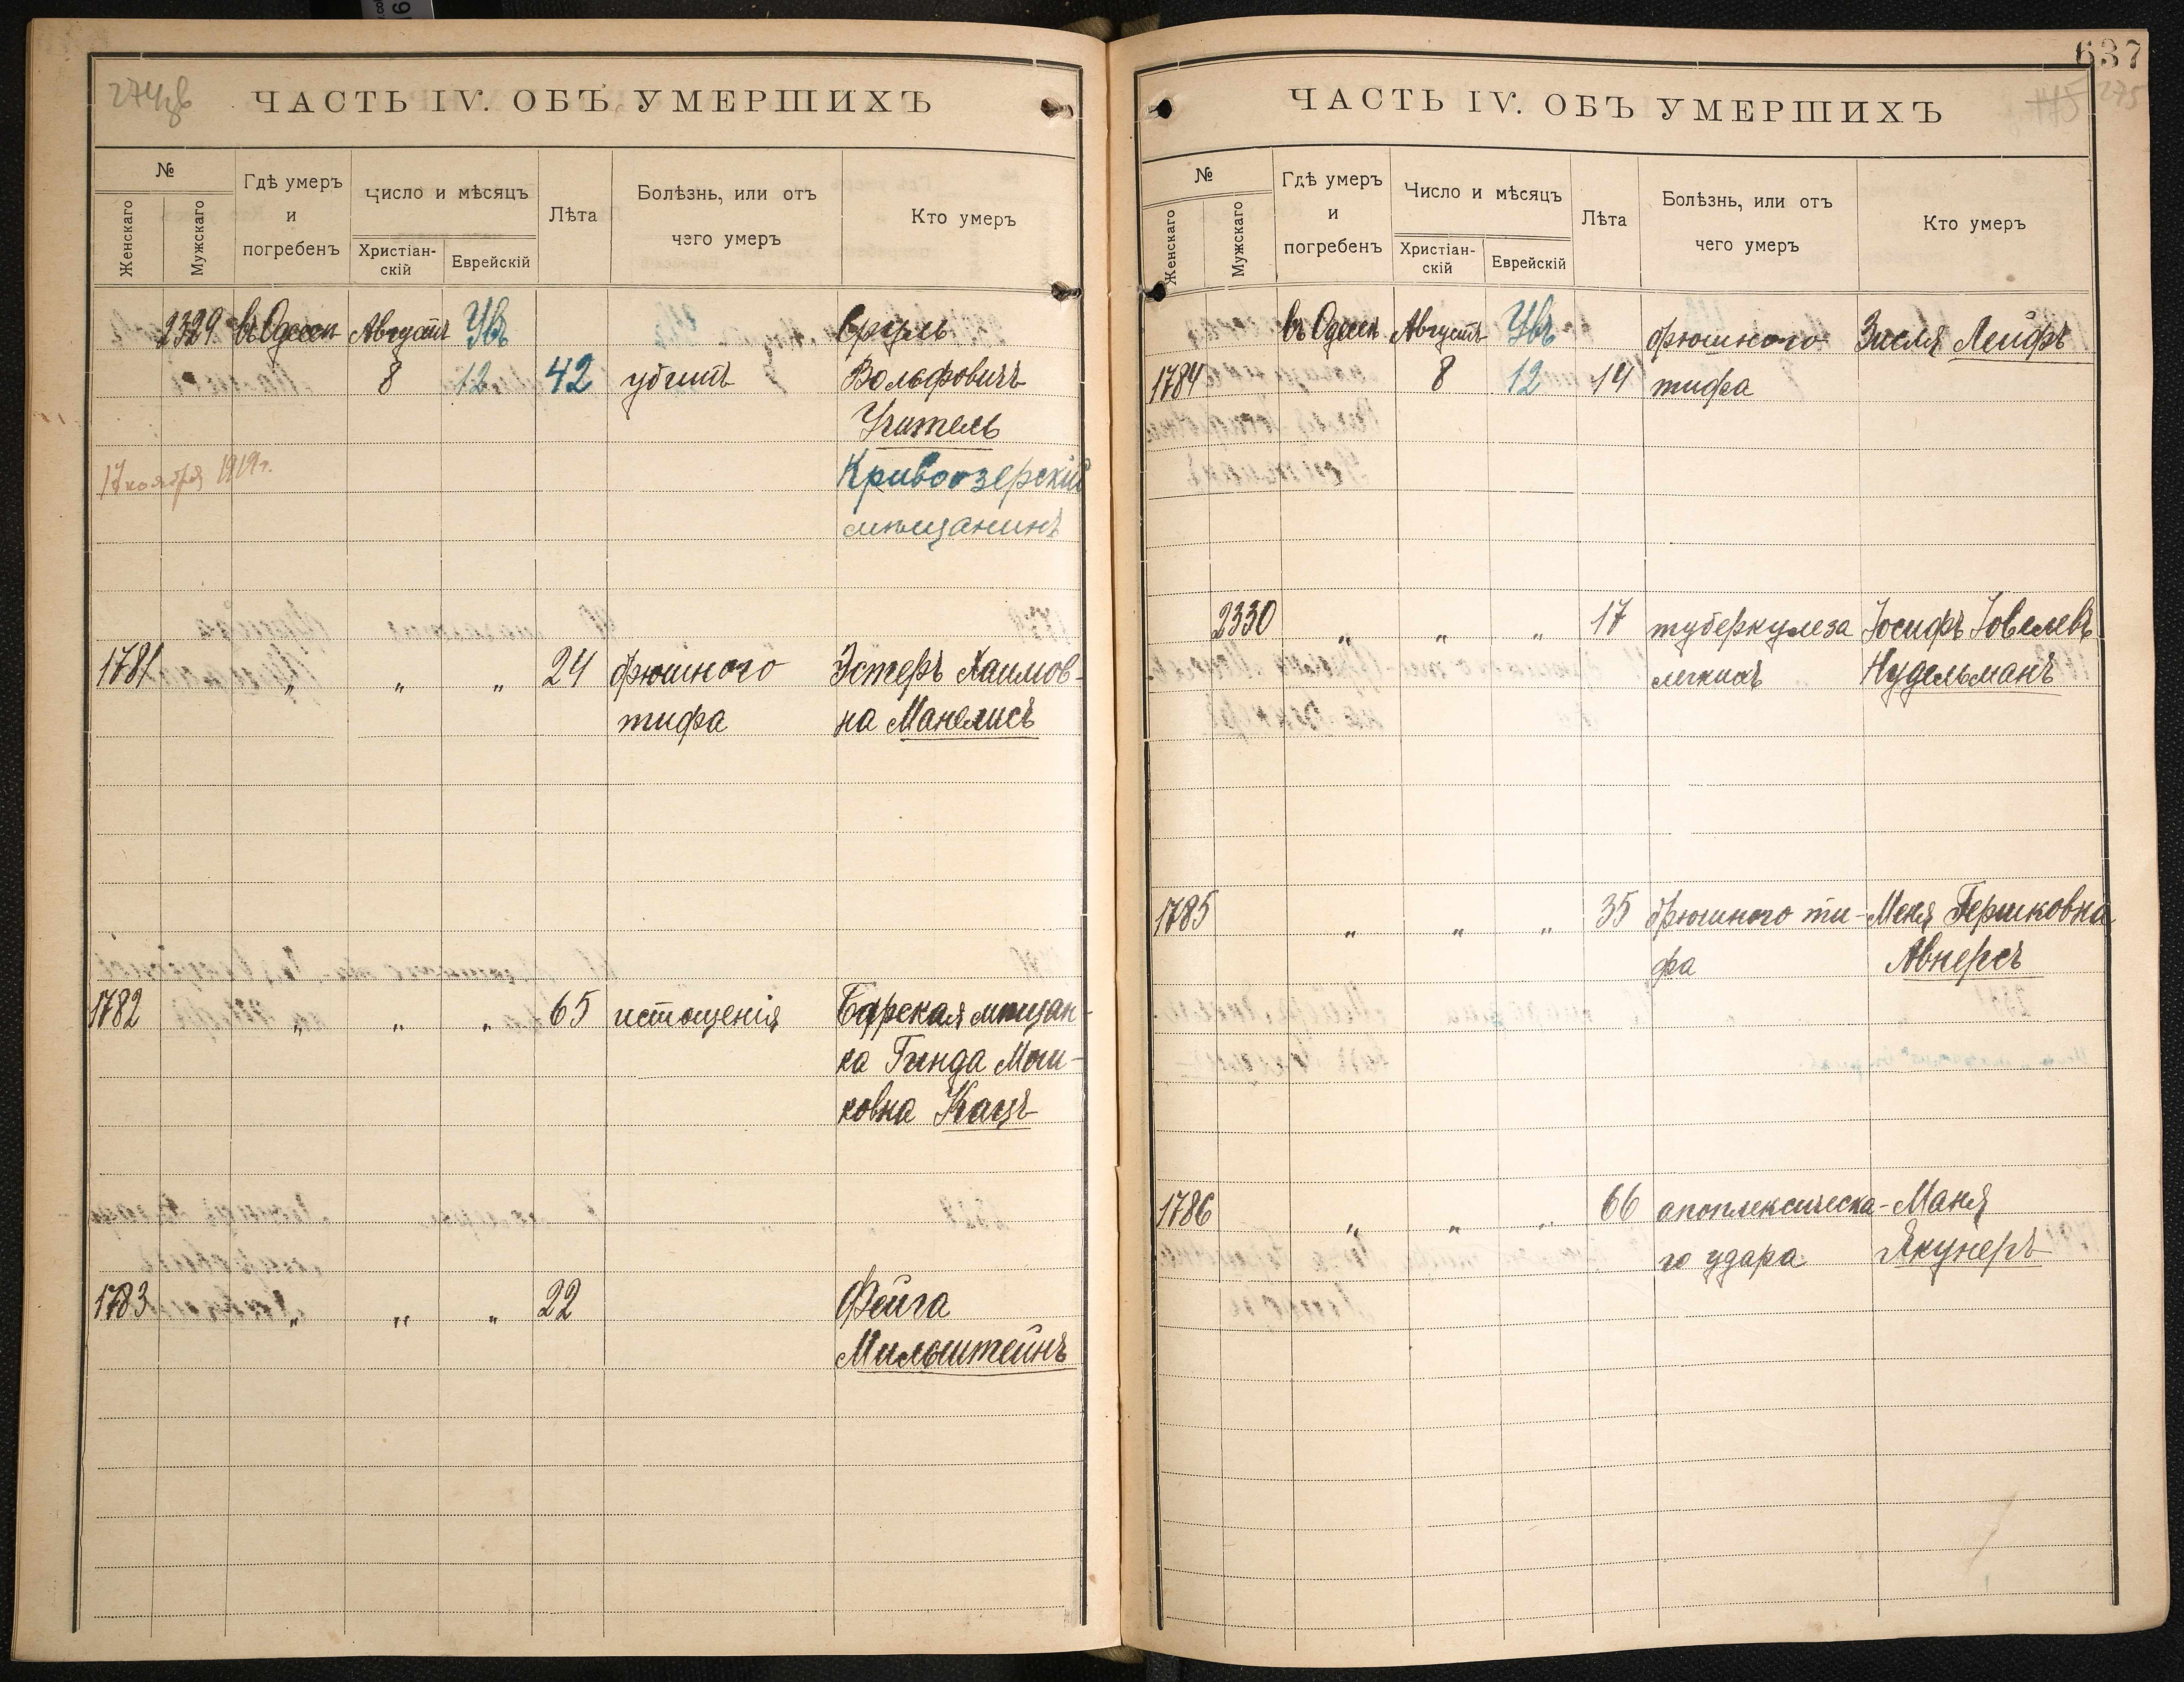 274
ЧАСТЬ IV. ОБЪ УМЕРШИХЪ
№
Женскаго
Мужскаго
Гдѣ умеръ
и
погребенъ
Число и мѣсяцъ
Христіан-
скій
Еврейскій
Лѣта
Болѣзнь, или отъ
чего умеръ
Кто умеръ
2329 въ Одессѣ Августъ Увъ Сруль
8 12 42 убитъ Вольфовичъ
Учитель
17 ноября 1919 г. Кривоозерскій
мѣщанинъ
1781 „ „ „ 24 брюшного Эстеръ Хаимов-
тифа на Манелисъ
1782 „ „ „ 65 истощенія Барская мѣщан-
ка Гинда Мош-
ковна Кацъ
1783 „ „ „ 22 Фейга
Мильштейнъ
637
275
ЧАСТЬ IV. ОБЪ УМЕРШИХЪ
№
Женскаго
Мужскаго
Гдѣ умеръ
и
погребенъ
Число и мѣсяцъ
Христіан-
скій
Еврейскій
Лѣта
Болѣзнь, или отъ
чего умеръ
Кто умеръ
въ Одессѣ Августъ Увъ брюшного Зисля Лейфъ
1784 8 12 14 тифа
2330 „ „ „ 17 туберкулеза Іосифъ Іовелевъ
легкихъ Нудельманъ
1785 „ „ „ 35 брюшного ти- Меня Гершковна
фа Авнерсъ
1786 „ „ „ 66 апоплексическа- Маня
го удара Якунеръ